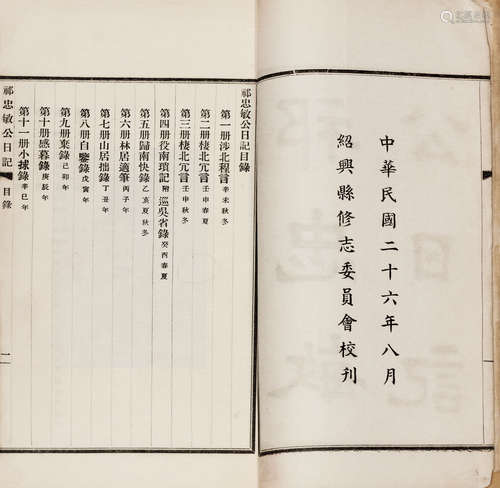 中華民國二十六年八月
紹興縣修志委員會校刊
祁忠敏公日記目錄
第一册涉北程言 辛未秋冬
第二册棲北冗言 壬申春夏
第三册棲北冗言 壬申秋冬
第四册役南瑣記 附巡吳省錄 癸丙春夏
第五册歸南快錄 乙亥夏秋冬
第六册林居適筆 丙子年
第七册山居拙錄 丁丑年
第八册自鑒錄 戊寅年
第九册棄錄 己卯年
第十册感慕錄 庚辰年
第十一册小捄錄 辛巳年
祁忠敏公日記 目錄 一